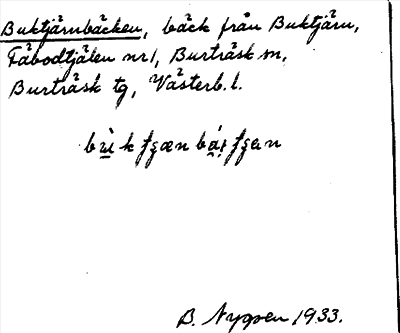 Buktjärnbäcken, bäck från Buktjärn,
Fäbodtjälen nr 1, Burträsk sn,
Burträsk tg, Västerb. l.
B. Nygren 1933.